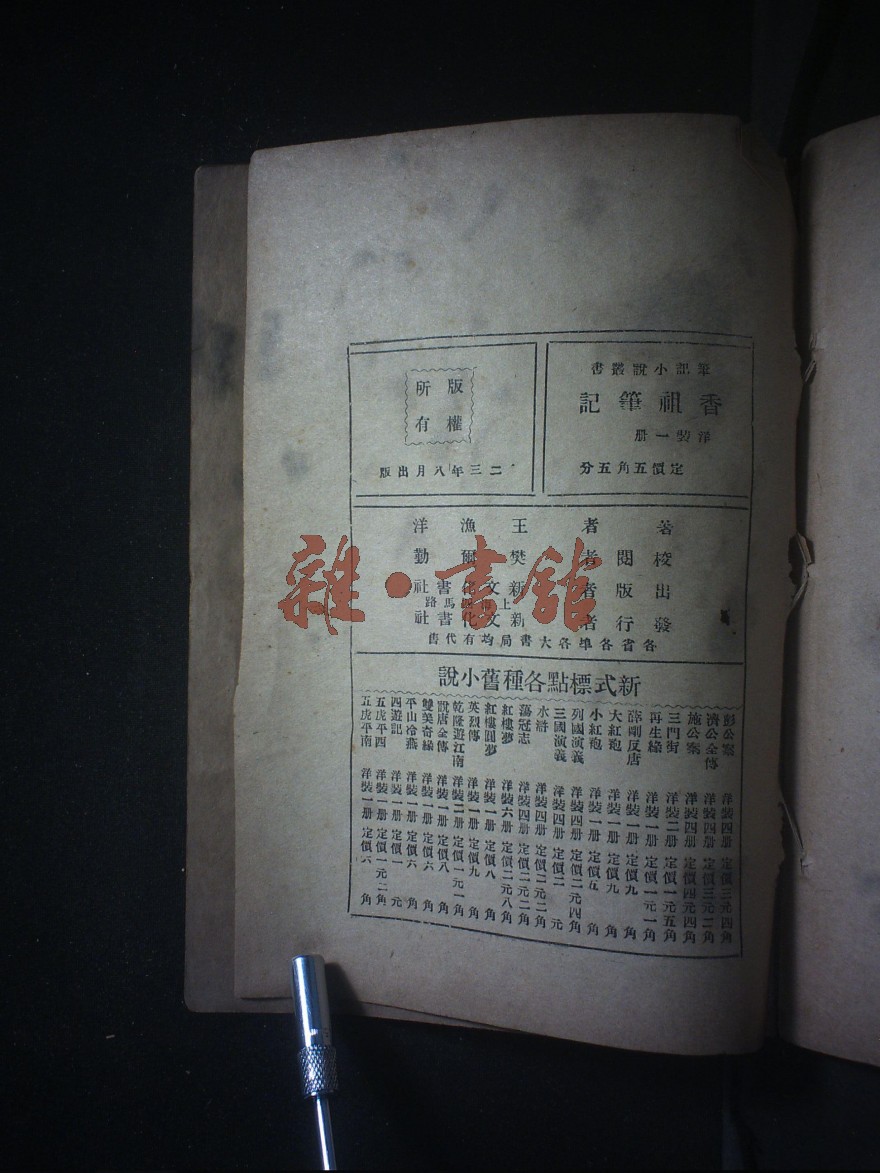 筆記小說叢書
香祖筆記
洋裝一册
定價五角五分
版權所有
二三年八月出版
著者 王漁洋
校閱者 樊爾勤
出版者 新文化書社
上海四馬路
發行者 新文化書社
各省各埠各大書局均有代售
新式標點各種舊小說
彭公案 洋裝四册 定價三元四角
濟公全傳 洋裝四册 定價三元二角
施公案 洋裝四册 定價四元四角
三門街 洋裝二册 定價一元五角
再生緣 洋裝一册 定價一元一角
薛剛反唐 洋裝一册 定價九角
大紅袍 洋裝一册 定價九角
小紅袍 洋裝一册 定價五角
列國演義 洋裝四册 定價二元四角
三國演義 洋裝四册 定價二元
水滸 洋裝四册 定價二元二角
蕩寇志 洋裝四册 定價二元二角
紅樓夢 洋裝六册 定價二元八角
紅樓圓夢 洋裝一册 定價八角
英烈傳 洋裝一册 定價九角
乾隆遊江南 洋裝一册 定價一元一角
說唐全傳 洋裝一册 定價八角
雙美奇緣 洋裝一册 定價六角
平山冷燕 洋裝一册 定價六角
四遊記 洋裝一册 定價一元
五虎平西 洋裝一册 定價一元二角
五虎平南 洋裝一册 定價六角
雜·書館